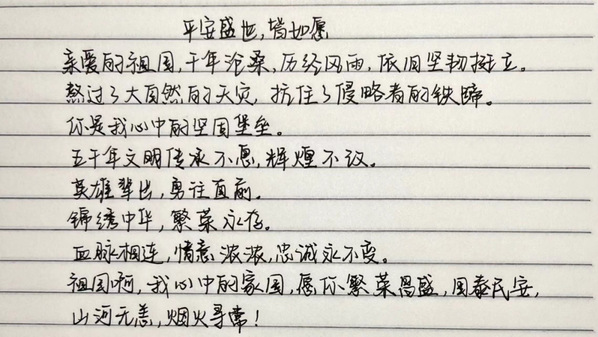 平安盛世,皆如愿
亲爱的祖国,千年沧桑,历经风雨,依旧坚韧挺立。
熬过了大自然的天灾,抗住了侵略者的铁蹄。
你是我心中的坚固堡垒。
五千年文明传承不息,辉煌不议。
英雄辈出,勇往直前。
锦绣中华,繁荣永存。
血脉相连,情意浓浓,忠诚永不变。
祖国啊,我心中的家国,愿你繁荣昌盛,国泰民安,
山河无恙,烟火寻常!